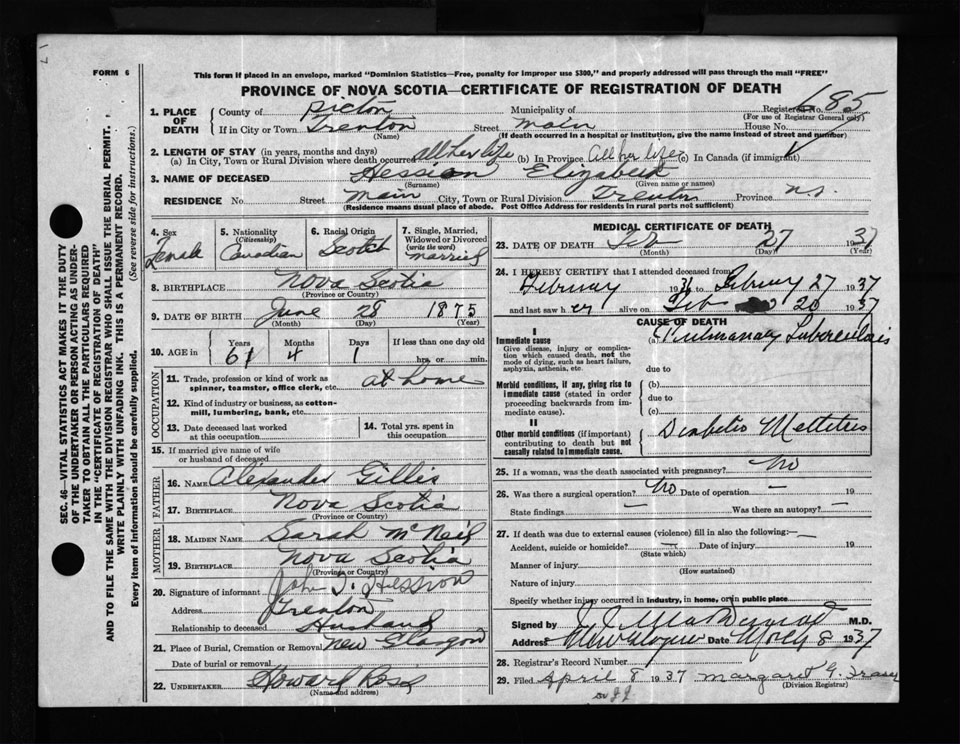 FORM 6
This form if placed in an envelope, marked "Dominion Statistics—Free, penalty for improper use $300," and properly addressed will pass through the mail "FREE"
PROVINCE OF NOVA SCOTIA—CERTIFICATE OF REGISTRATION OF DEATH
SEC. 46—VITAL STATISTICS ACT MAKES IT THE DUTY
OF THE UNDERTAKER OR PERSON ACTING AS UNDER-
TAKER TO OBTAIN ALL THE PARTICULARS REQUIRED
IN THE "CERTIFICATE OF REGISTRATION OF DEATH"
AND TO FILE THE SAME WITH THE DIVISION REGISTRAR WHO SHALL ISSUE THE BURIAL PERMIT.
WRITE PLAINLY WITH UNFADING INK. THIS IS A PERMANENT RECORD.
Every item of Information should be carefully supplied. (See reverse side for instructions.)
1. PLACE OF DEATH
County of Pictou Municipality of Registered No. 685
(For use of Registrar General only)
If in City or Town Trenton Street Main House No.
(Name) (If death occurred in a hospital or institution, give the name instead of street and number)
2. LENGTH OF STAY (in years, months and days)
(a) In City, Town or Rural Division where death occurred all her life (b) In Province All her life (c) In Canada (if immigrant)
3. NAME OF DECEASED Hession Elizabeth
(Surname) (Given name or names)
RESIDENCE No. Street Main City, Town or Rural Division Trenton Province N.S.
(Residence means usual place of abode. Post Office Address for residents in rural parts not sufficient)
4. Sex Female
5. Nationality (Citizenship) Canadian
6. Racial Origin Scotch
7. Single, Married, Widowed or Divorced (write the word) married
8. BIRTHPLACE Nova Scotia
(Province or Country)
9. DATE OF BIRTH June 28 1875
(Month) (Day) (Year)
10. AGE in Years Months Days If less than one day old
61 4 1 hrs. or min.
OCCUPATION
11. Trade, profession or kind of work as spinner, teamster, office clerk, etc. at home
12. Kind of industry or business, as cotton-mill, lumbering, bank, etc.
13. Date deceased last worked at this occupation
14. Total yrs. spent in this occupation
15. If married give name of wife or husband of deceased
FATHER
16. NAME Alexander Gillis
17. BIRTHPLACE Nova Scotia
(Province or Country)
MOTHER
18. MAIDEN NAME Sarah McNeil
19. BIRTHPLACE Nova Scotia
(Province or Country)
20. Signature of informant John Hession
Address Trenton
Relationship to deceased Husband
21. Place of Burial, Cremation or Removal New Glasgow
Date of burial or removal
22. UNDERTAKER Howard Rose
(Name and address)
MEDICAL CERTIFICATE OF DEATH
23. DATE OF DEATH Feb 27 1937
(Month) (Day) (Year)
24. I HEREBY CERTIFY that I attended deceased from
February 19 to February 27 1937
and last saw her alive on Feb 20 1937
CAUSE OF DEATH
I
Immediate cause
Give disease, injury or complication which caused death, not the mode of dying, such as heart failure, asphyxia, asthenia, etc.
(a) Pulmonary Tuberculosis
due to
Morbid conditions, if any, giving rise to immediate cause (stated in order proceeding backwards from immediate cause).
(b)
due to
(c)
II
Other morbid conditions (if important) contributing to death but not causally related to immediate cause.
Diabetis Mellitus
25. If a woman, was the death associated with pregnancy? No
26. Was there a surgical operation? No Date of operation — 19
State findings — Was there an autopsy? —
27. If death was due to external causes (violence) fill in also the following:—
Accident, suicide or homicide? — Date of injury 19
(State which)
Manner of injury
(How sustained)
Nature of injury
Specify whether injury occurred in industry, in home, or in public place
Signed by M.D.
Address New Glasgow Date 8 1937
28. Registrar's Record Number
29. Filed April 8 1937 Margaret
(Division Registrar)